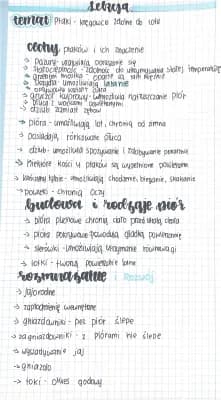 Lekcja
temat: Ptaki - kręgowce zdolne do lotu
cechy ptaków i ich znaczenie
→ Pazury- umożliwia poruszanie się
→ Stałocieplność - zdolność do utrzymywania stałej temperatury
→ grzebień mostka -
→ Skrzydła - umożliwia latanie
→ opływowy kształt ciała
→ Gruczoł kuprowy - umożliwia natłuszczanie piór
→ płuca z workami powietrznymi
→ dziób zamiast zębów
→ pióra - umożliwiają lot, chronią od zimna
→ posiadają rurkowate płuca
→ dziób - umożliwia spożywanie i zdobywanie pokarmu
→ Niektóre kości u ptaków są wypełnione powietrzem
→ kończyny tylne - umożliwiają chodzenie, bieganie, skakanie
→ powieki - chronią oczy
budowa i rodzaje piór
→ pióra puchowe chronią ciało przed utratą ciepła
→ pióra pokrywowe powodują gładką powierzchnię
→ sterówki - umożliwiają utrzymanie równowagi
→ lotki - tworzą powierzchnię lotną
rozmnażanie i Rozwój
→ jajorodne
→ zapłodnienie wewnętrzne
→ gniazdowniki - bez piór ślepe
→ zagniazdowniki - z piórami nie ślepe
→ wysiadywanie jaj
→ gniazdo
→ toki - okres godowy